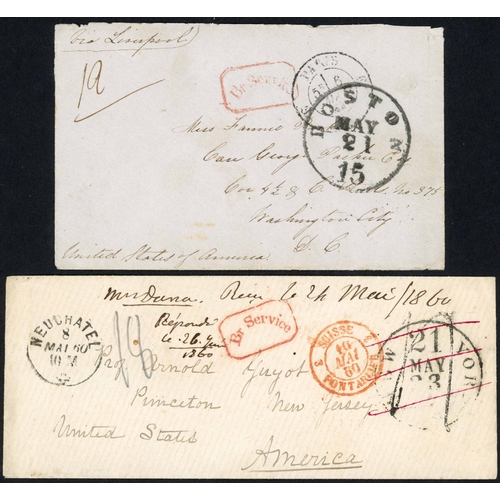 via Liverpool
12
Br Service
PARIS
BOSTON
MAY
21
15
Miss Fannie
Care George Parker Esq
Cor 4½ & C No 375
Washington City
D. C.
United States of America
Mrs Dana. Reçu le 24 Mai/1860
Répondu
le 26
1860
Br Service
NEUCHATEL
8
MAI 60
10 M
SUISSE
10
MAI
60
PONTARLIER
3 3
21
MAY
23
YORK
Prof Arnold Guyot
Princeton New Jersey
United States
America